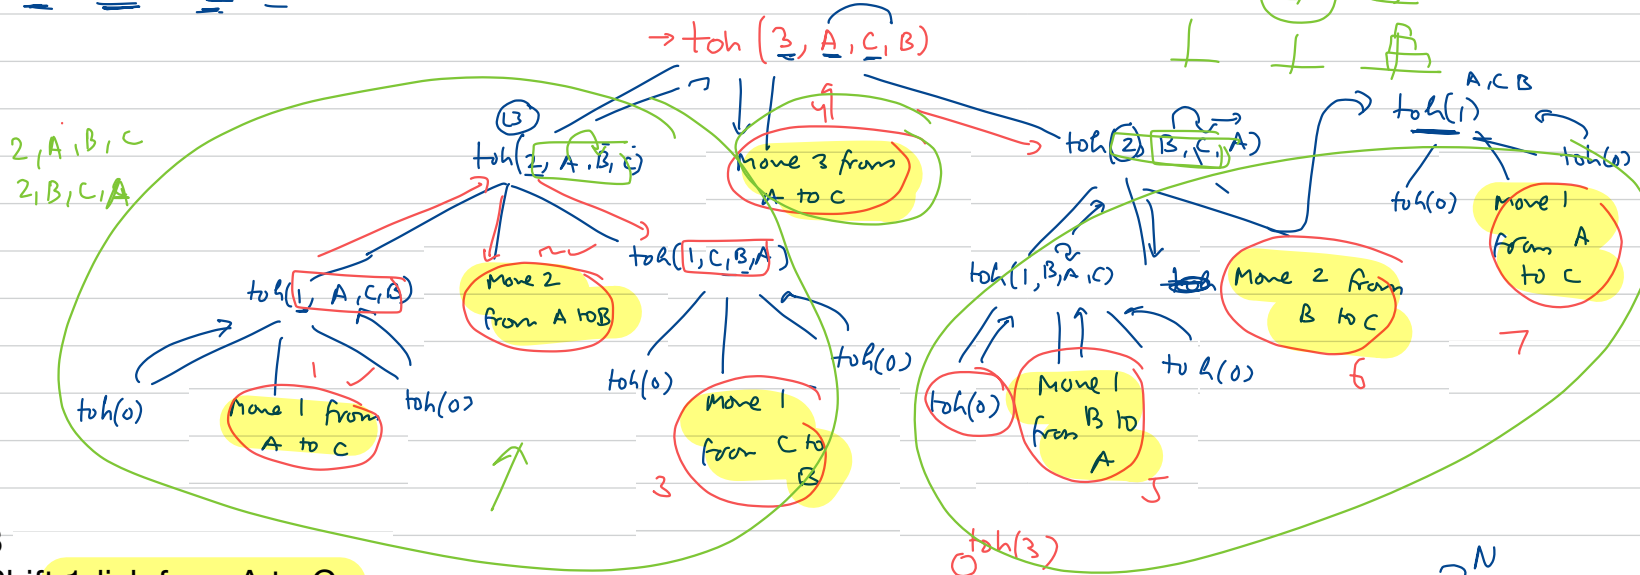 → toh (3, A, C, B)
A, C B
toh(1)
4
13
2, A, B, C
2, B, C, A
toh(2, A, B, C)
Move 3 from
A to C
toh(2, B, C, A)
toh(0)
toh(0)
Move 1
from A
to C
7
toh(1, A, C, B)
Move 2
from A to B
toh(1, C, B, A)
toh(1, B, A, C)
toh
Move 2 from
B to C
6
toh(0)
1
Move 1 from
A to C
toh(0)
toh(0)
Move 1
from C to
B
3
toh(0)
toh(0)
Move 1
from B to
A
5
toh(0)
toh(3)
N